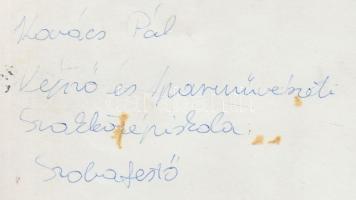 Kovács Pál
Képző és Iparművészeti
Szakközépiskola.
Szobafestő